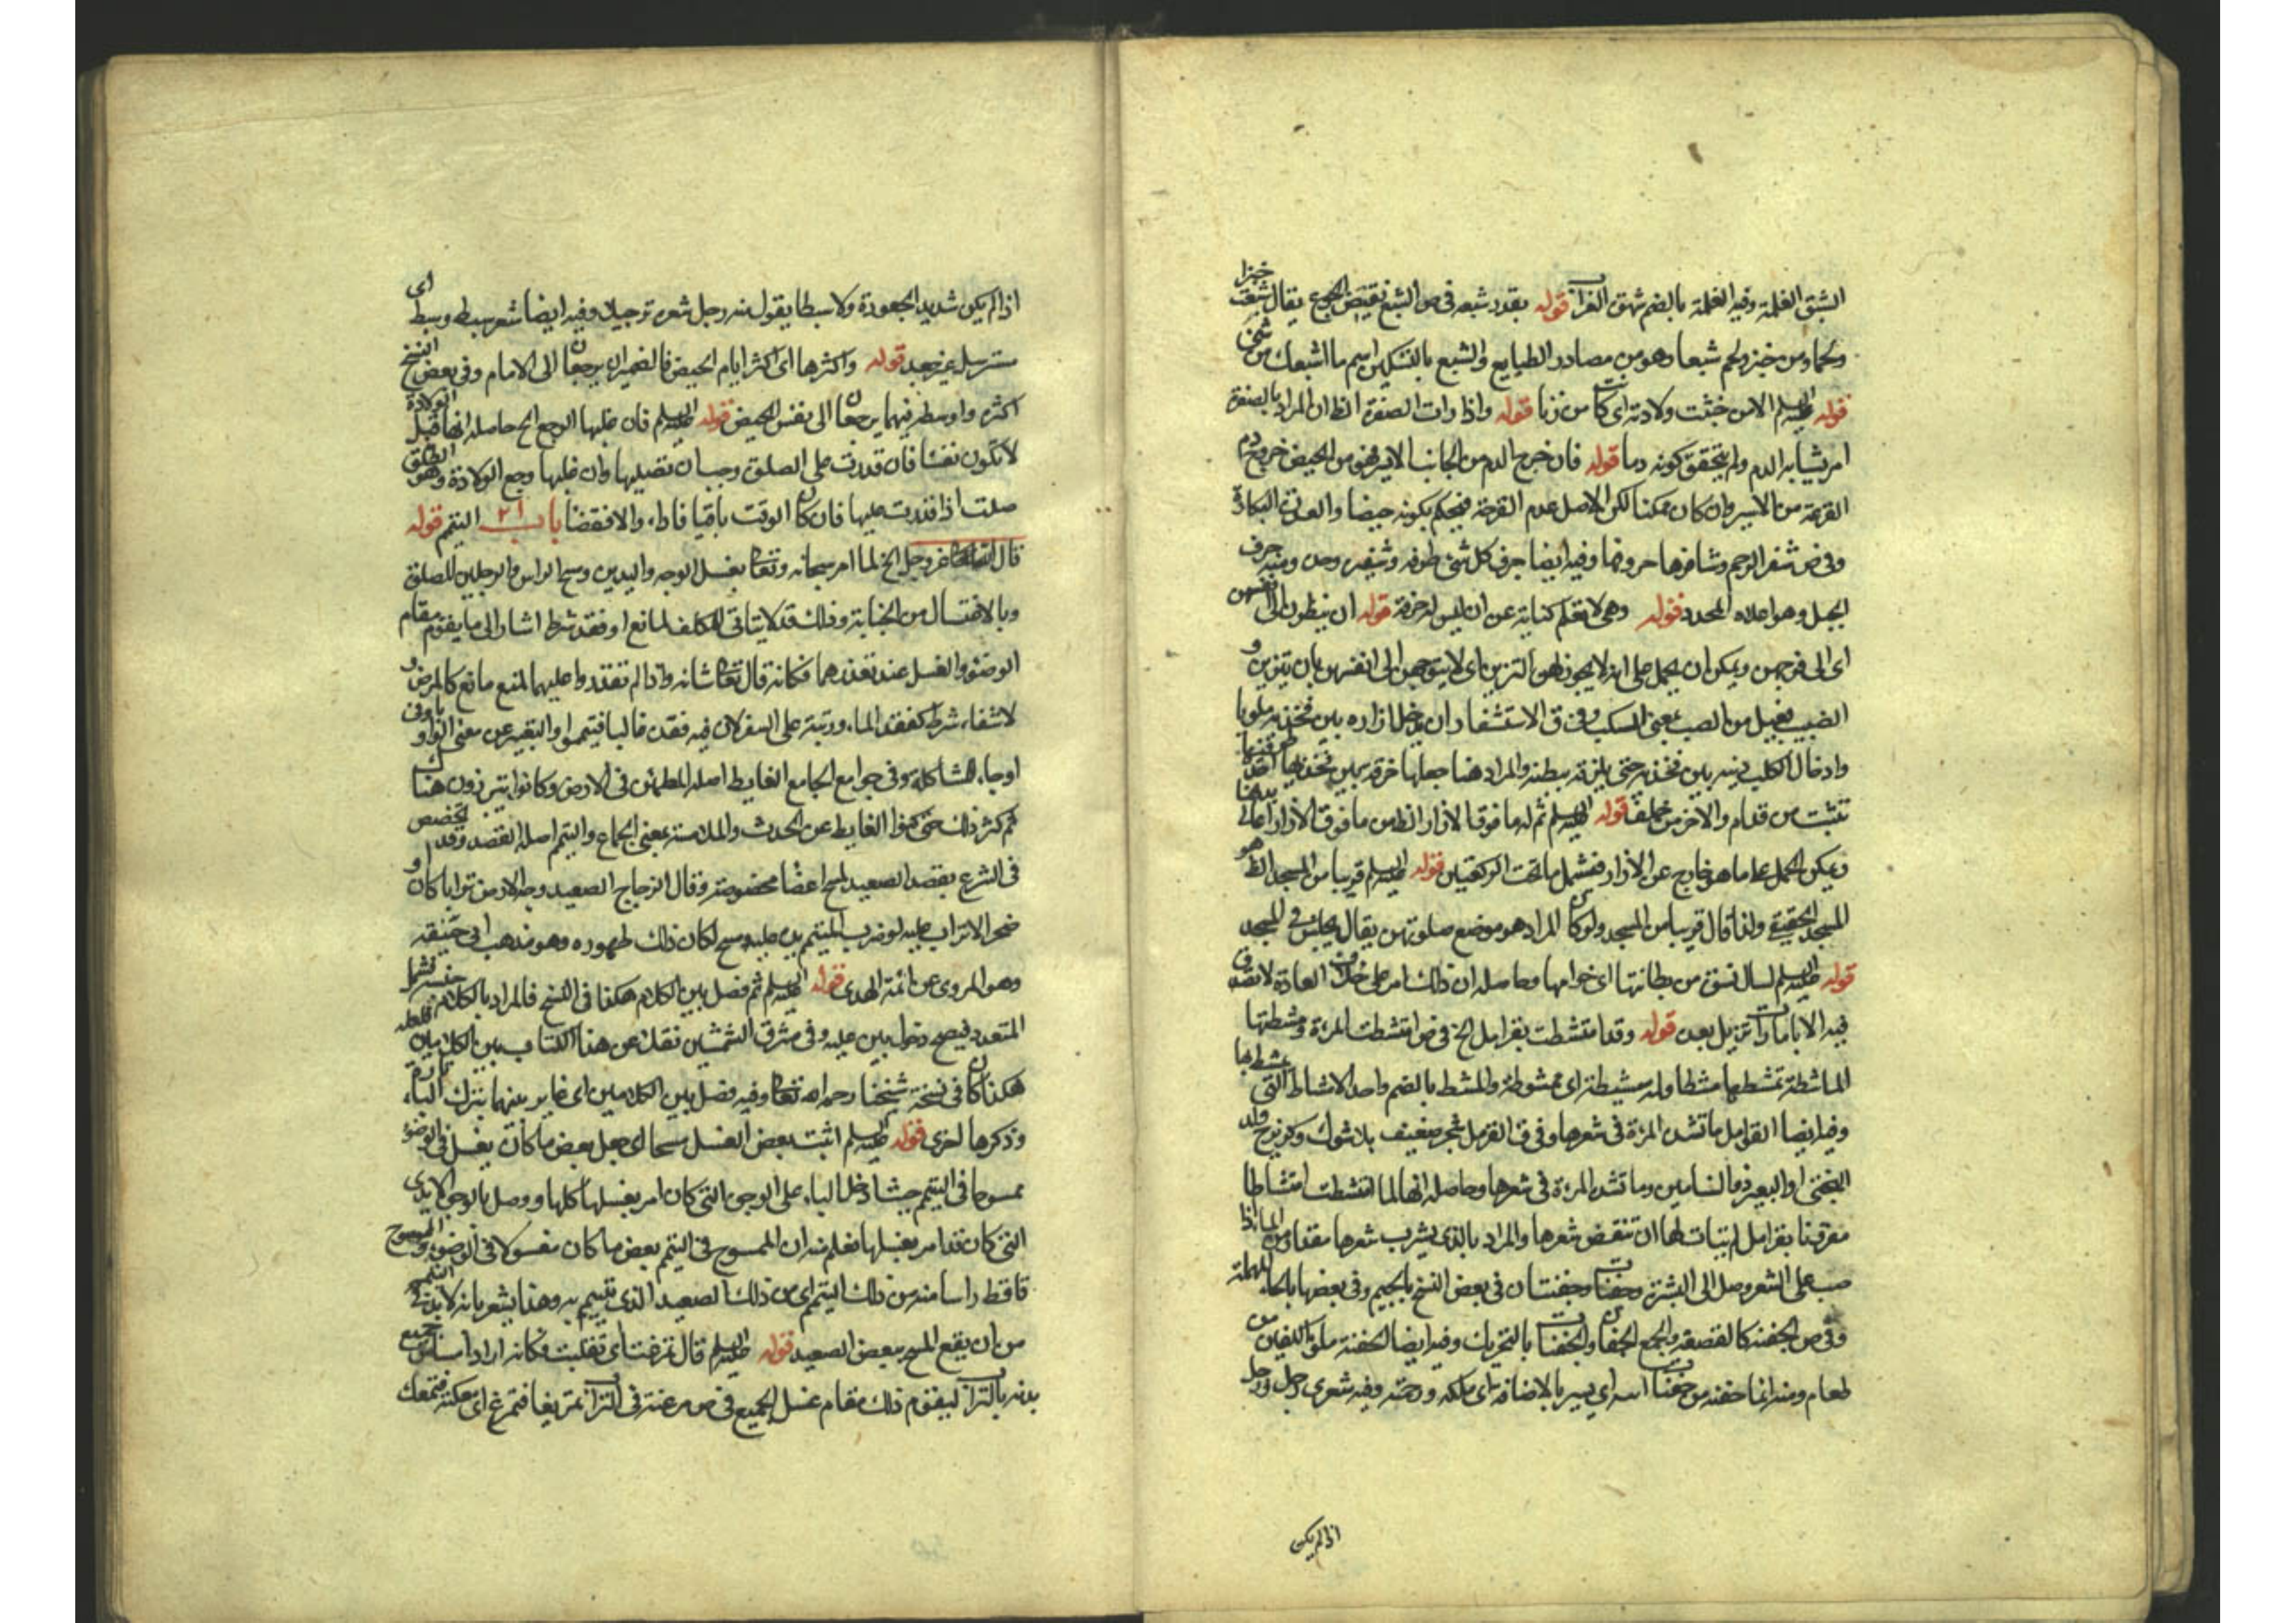 الشبق الغلمة وفيه الغلمة بالضم شهق الضراب قوله بقدر شبعه في ص الشبع نقيض الجوع يقال شبعت خبزا
ولحما ومن خبز ولحم شبعا وهو من مصادر الطبايع والشبع بالتسكين اسم ما اشبعك من شئ
قوله عليه السلم الا من خبثت ولادته اى كانت من زنا قوله واذا رات الصفرة الظ ان المراد بالصفرة
امر يشابه الدم ولم يتحقق كونه دما قوله فان خرج الدم من الجانب الايسر فهو من الحيض خروج دم
القرحة من الايسر وان كان ممكنا لكن الاصل عدم القرحة فيحكم بكونه حيضا والعذرة البكارة
وفي ص شفر الرحم وشافرها حروفها وفيه ايضا حرف كل شئ طرفه وشفيره وحده ومنه حرف
الجبل وهو اعلاه المحدد قوله وهى لا تعلم كناية عن ان ليس لرخصة قوله ان ينظرن الى انفسهن
اى الى فروجهن ويمكن ان يحمل على انه لا يجوز لهن التزين اى لا يتوجهن الى انفسهن بان يتزين و
الصبيب فعيل من الصب بمعنى السكب وفى ق الاستثفار ان يدخل ازاره بين فخذيه ملويا
وادخال الكلب ذنبه بين فخذيه حتى يلزقه ببطنه والمراد هنا جعلها خرقة بين فخذيها احد طرفيها
تثبت من قدام والاخر من خلف قوله عليه السلم ثم له ما فوق الازار الظ من ما فوق الازار اعالى بدنها
ويمكن الحمل على ما هو خارج عن الازار فيشمل ما تحت الركبتين قوله عليه السلم قريبا من المسجد الظ هو
المسجد الحقيقى ولذا قال قريبا من المسجد ولو كان المراد هو موضع صلوتهن يقال يجلسن في المسجد
قوله عليه السلم لسال نسوة من بطانتها اى خواصها وحاصله ان ذلك امر على خلاف العادة لا نصدق
فيه الا بامارات تزيل بعده قوله وقد امتشطت بقرامل الخ في ص امتشطت المرءة ومشطتها
الماشطة تمشطها مشطا ولمة مشيطة اى ممشوطة والمشط بالضم واحد الامشاط التى يمشط بها
وفيه ايضا القرامل ما تشده المرءة في شعرها وفى ق القرمل شجر ضعيف بلا شوك وكزبرج ولد
البختى او البعير ذو السنامين وما تشده المرءة في شعرها وحاصله انها لما امتشطت امتشاطا
مقرونا بقرامل لم يتات لها ان تنقض شعرها والمراد بالذى يشرب شعرها مقدار من الماء اذا
صب على الشعر وصل الى البشرة وحفنات وحفنتان في بعض النسخ بالجيم وفى بعضها بالحاء المهملة
وفى ص الجفنة كالقصعة والجمع الجفان والجفنات بالتحريك وفيه ايضا الحفنة ملؤ الكفين من
طعام ومنه انما حفنة من حفنات الله اى يسير بالاضافة اى ملكه ورحمته وفيه شعرى رجل ورجل
اذا لم يكن
اذا لم يكن شديد الجعودة ولا سبطا يقول منه رجل شعره ترجيلا وفيه ايضا شعر سبط وسبط اى
مسترسل غير جعد قوله واكثرها اى اكثر ايام الحيض فالضميران يرجعان الى الامام وفى بعض النسخ
اكثره واوسطه فيهما يرجعان الى نفس الحيض قوله عليه السلم فان غلبها الوجع الخ حاصله انها قبل الولادة
لا تكون نفساء فان قدرت على الصلوة وجب ان تصليها وان غلبها وجع الولادة وهو الطلق
صلت اذا قدرت عليها فان كان الوقت باقيا فاداء والا فقضاء باب ٢١ التيمم قوله
قال الله عز وجل الخ لما امر سبحانه وتعالى بغسل الوجه واليدين ومسح الراس والرجلين للصلوة
وبالاغتسال من الجنابة وذلك قد لا يتاتى للمكلف لمانع او فقد شرط اشار الى ما يقوم مقام
الوضوء والغسل عند تعذرهما فكانه قال تعالى شانه واذا لم تقدروا عليهما لمنع مانع كالمرض و
لانتفاء شرط كفقد الماء ورتبة على السفر لان فيه فقده غالبا فتيمموا والتعبير عن معنى الواو باو في
او جاء للمشاكلة وفى جوامع الجامع الغايط اصله المطمئن في الارض وكانوا يتبرزون هناك
ثم كثر ذلك حتى كنوا الغايط عن الحدث والملامسة بمعنى الجماع والتيمم اصله القصد وقد تخصص
في الشرع بقصد الصعيد لمسح اعضاء مخصوصة وقال الزجاج الصعيد وجه الارض ترابا كان او
صخرا لا تراب عليه لو ضرب المتيمم يده عليه ومسح لكان ذلك طهوره وهو مذهب ابى حنيفة
وهو المروى عن ائمة الهدى قوله عليه السلم ثم فصل بين الكلام هكذا في النسخ فالمراد بالكلام جنسه فيشمل
المتعدد فيصح دخول بين عليه وفى مشرق الشمسين نقلا عن هذا الكتاب بين الكلامين فلعله
هكذا كان في نسخة شيخنا رحمه الله تعالى وفيه فصل بين الكلامين اى غاير بينهما بترك الباء تارة
وذكرها اخرى قوله عليه السلم اثبت بعض الغسل مسحا اى جعل بعض ما كان يغسل في الوضوء
ممسوحا في التيمم حيث ادخل الباء على الوجوه التى كان امر بغسلها كلها ووصل بالوجوه الايدى
التى كان قد امر بغسلها فعلم منه ان الممسوح في التيمم بعض ما كان مغسولا في الوضوء والممسوح
قد سقط راسا منه من ذلك التيمم اى من ذلك الصعيد الذى تيمم به وهذا يشعر بانه لا بد في التيمم
من ان يقع المسح ببعض الصعيد قوله عليه السلم قال تمرغت اى تقلبت فكانه اراد امساس جميع
بدنه بالتراب ليقوم ذلك مقام غسل الجميع في ص مرغته في التراب تمريغا فتمرغ اى معكته فتمعك